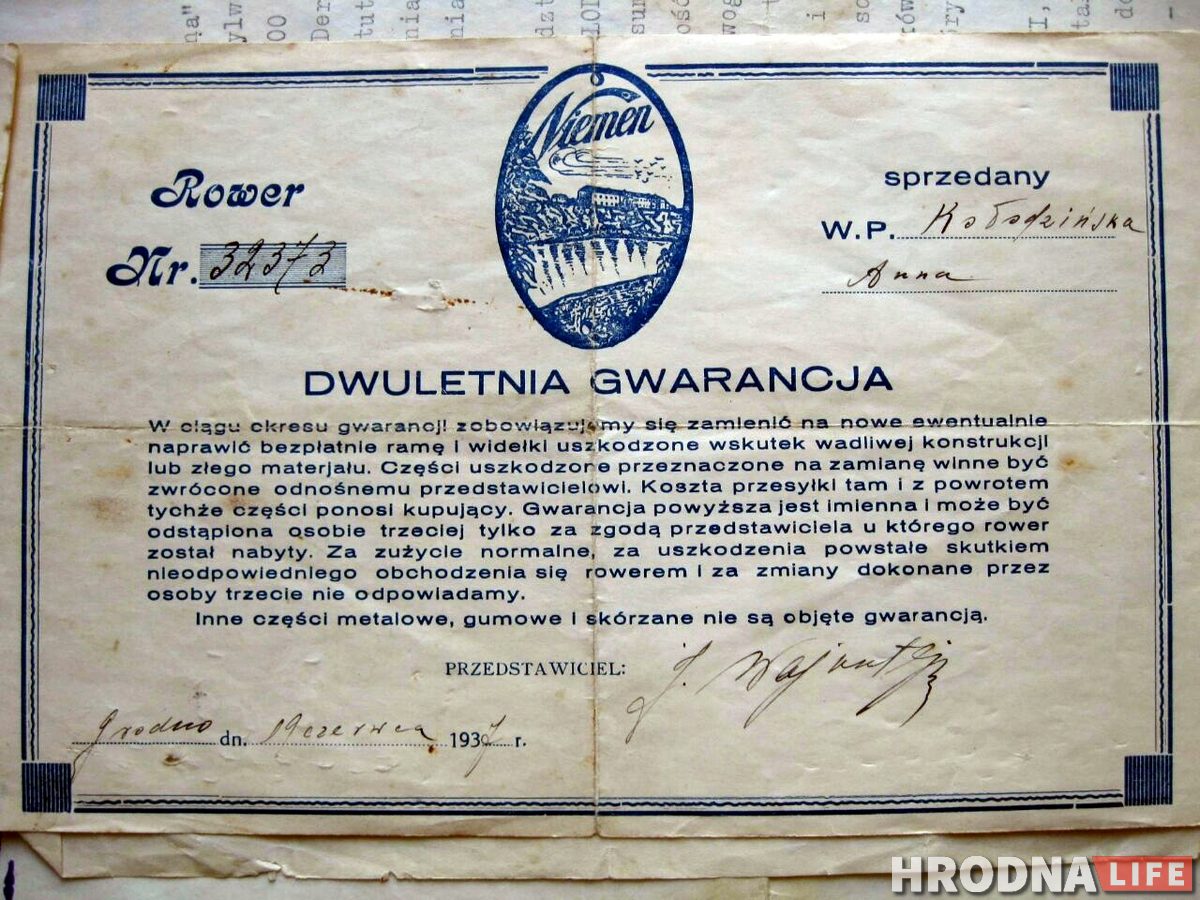 Niemen
Rower
Nr. 32373
sprzedany
W.P. Kołodzińska
Anna
DWULETNIA GWARANCJA
W ciągu okresu gwarancji zobowiązujemy się zamienić na nowe ewentualnie
naprawić bezpłatnie ramę i widełki uszkodzone wskutek wadliwej konstrukcji
lub złego materjału. Części uszkodzone przeznaczone na zamianę winne być
zwrócone odnośnemu przedstawicielowi. Koszta przesyłki tam i z powrotem
tychże części ponosi kupujący. Gwarancja powyższa jest imienna i może być
odstąpiona osobie trzeciej tylko za zgodą przedstawiciela u którego rower
został nabyty. Za zużycie normalne, za uszkodzenia powstałe skutkiem
nieodpowiedniego obchodzenia się rowerem i za zmiany dokonane przez
osoby trzecie nie odpowiadamy.
Inne części metalowe, gumowe i skórzane nie są objęte gwarancją.
PRZEDSTAWICIEL:
Grodno dn. 19 czerwca 1937 r.
HRODNA LIFE